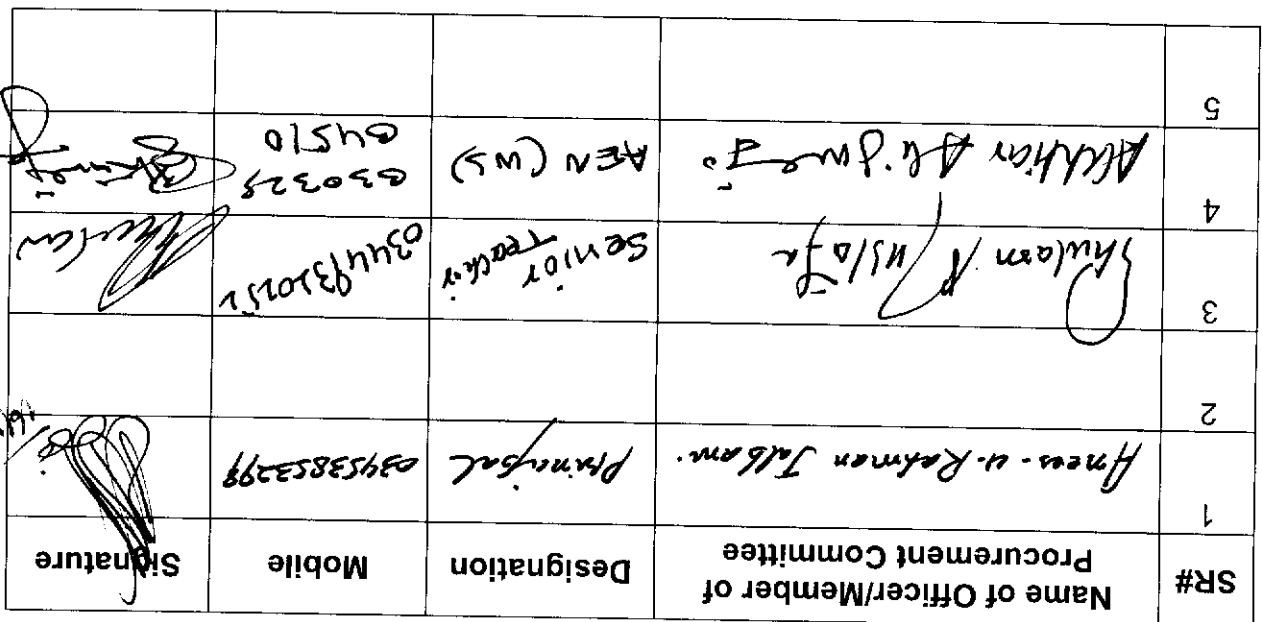 SR# Name of Officer/Member of Procurement Committee Designation Mobile Signature
1 Anees-u-Rahman Jalbani Principal 03453853298
2
3 Ghulam Mustafa Senior Teacher 03449320252
4 Akhtiar Ali AEN (WS) 0303 04510
5